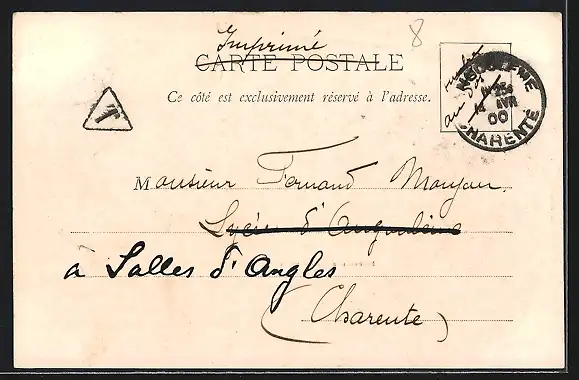 Imprimé
8
CARTE POSTALE
Ce côté est exclusivement réservé à l'adresse.
au
ANGOULEME
AVR
00
CHARENTE
T
Monsieur Fernand Moujou
Lycée d'Angoulême
à Salles d'Angles
(Charente)